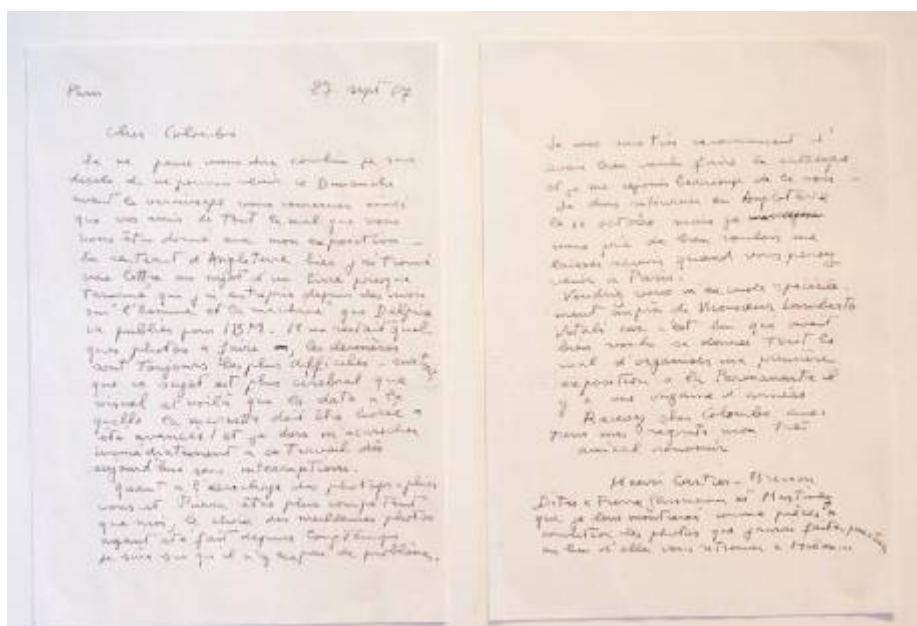 Paris 27 sept 67
Cher Colombo
Je ne peux vous dire combien je suis
désolé de ne pouvoir venir ce Dimanche
avant le vernissage vous remercier ainsi
que vos amis de tout le mal que vous
vous êtes donné pour mon exposition –
En rentrant d'Angleterre hier j'ai trouvé
une lettre au sujet d'un livre presque
terminé que j'ai entrepris depuis des mois
sur "l'homme et la machine" que Delpire
va publier pour IBM. Il me restait quel
ques photos à faire, les dernières
sont toujours les plus difficiles – surtout
que ce sujet est plus cérébral que
visuel et voilà que la date à la
quelle la maquette doit être livrée a
été avancée! et je dois m'accrocher
immédiatement à ce travail dès
aujourd'hui sans interruptions.
Quant à l'accrochage des photographies
vous et serez plus compétent
que moi, le choix des meilleures photos
ayant été fait depuis longtemps
je suis sûr qu'il n'y aura pas de problème.
Je vous suis très reconnaissant d'
avoir bien voulu faire le catalogue
et je me réjouis beaucoup de le voir –
Je dois retourner en Angleterre
le octobre mais je
vous prie de bien vouloir me
laisser savoir quand vous pensez
venir à Paris.
Voudriez vous m'excuser spéciale
ment auprès de Monsieur Lamberto
Vitali car c'est lui qui avait
bien voulu se donner tout le
mal d'organiser ma première
exposition à la Permanente il
y a une vingtaine d'années
Recevez cher Colombo, avec
tous mes regrets mon très
amical souvenir
Henri Cartier-Bresson
Dites à Pierre et Martinez
que je leur montrerai comme pièces à
conviction les photos que j'aurai faites
au lieu d'aller vous retrouver à Milan